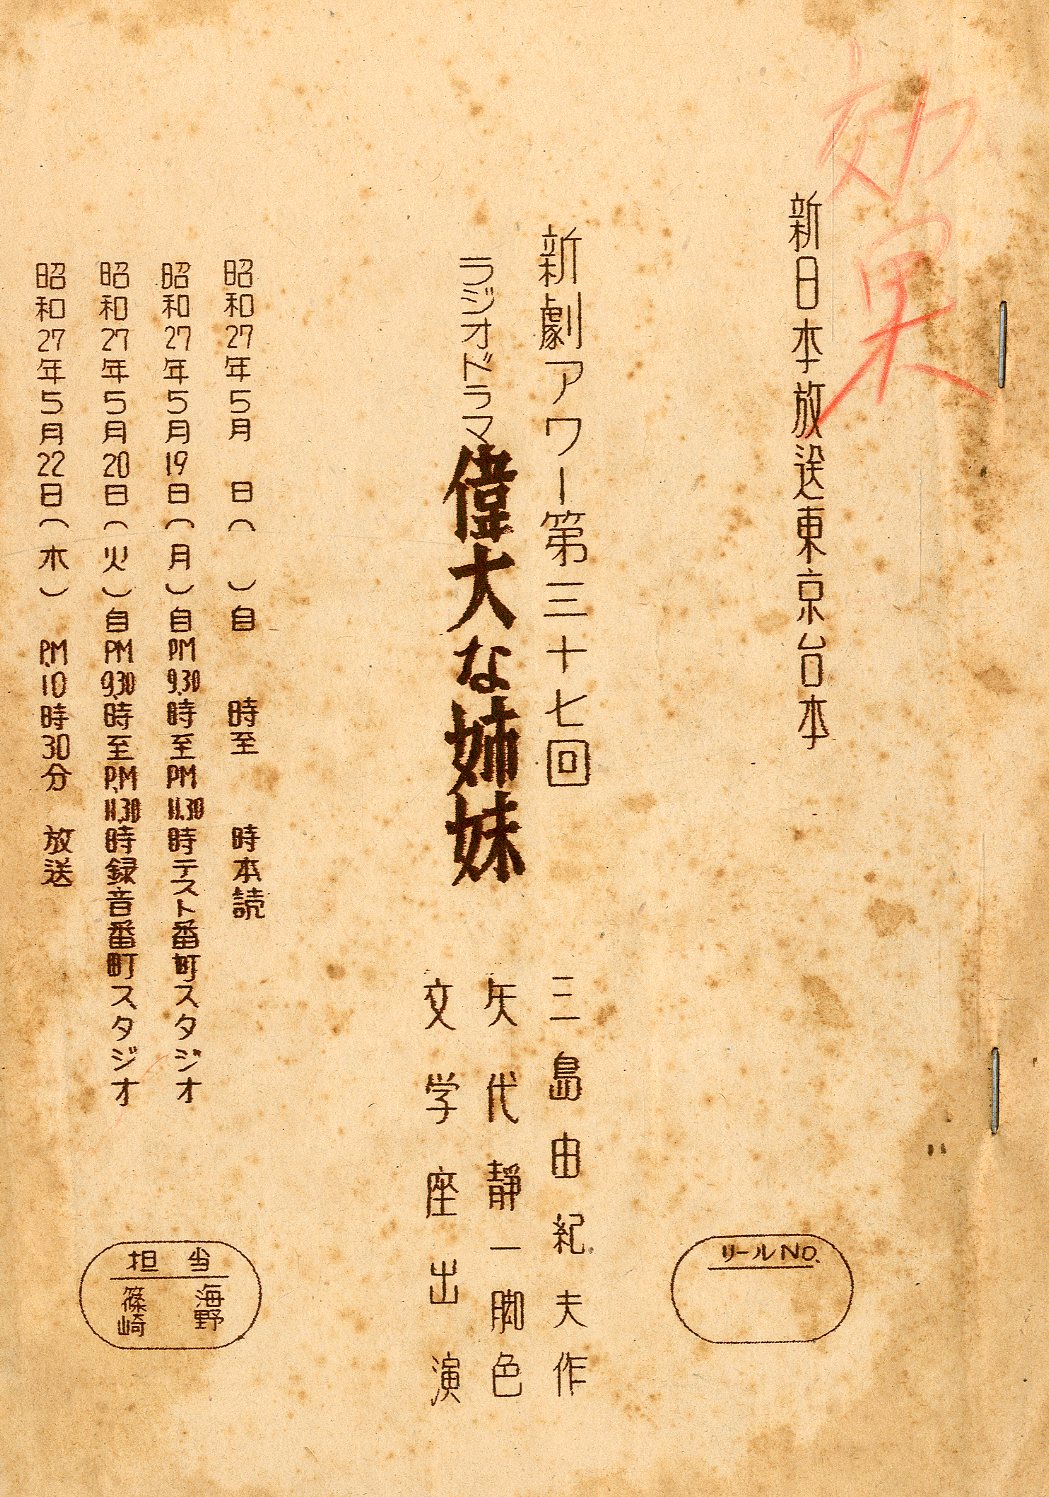 効果
新日本放送東京台本
新劇アワー第三十七回
ラジオドラマ偉大な姉妹
三島由紀夫作
矢代静一脚色
文学座出演
昭和27年5月 日( )自 時至 時本読
昭和27年5月19日(月)自PM9.30時至PM11.30時テスト番町スタジオ
昭和27年5月20日(火)自PM9.30時至P.M11.30時録音番町スタジオ
昭和27年5月22日(木) P.M.10時30分 放送
リールNO.
担当
海野
篠崎